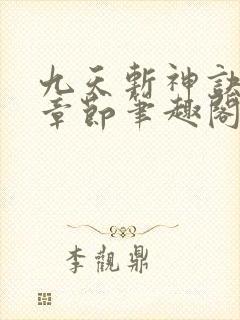 九天斬神訣
章節筆趣閣
李觀鼎